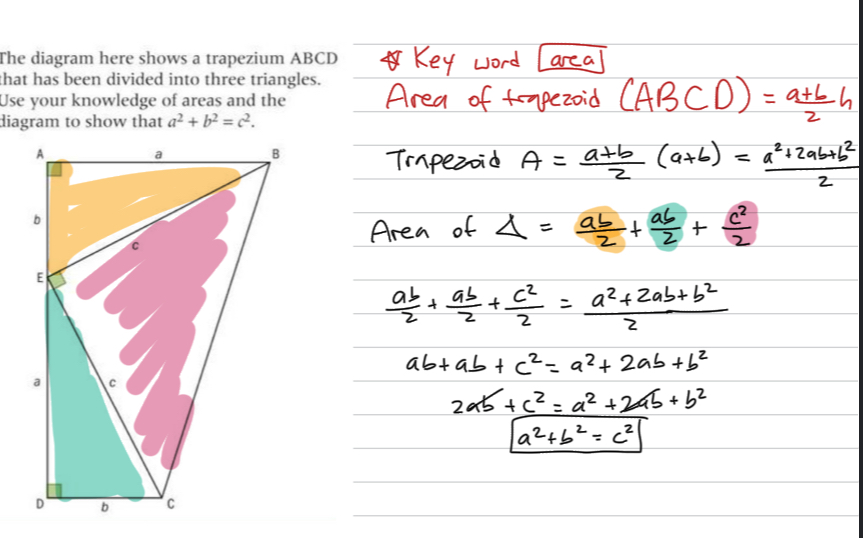 The diagram here shows a trapezium ABCD
that has been divided into three triangles.
Use your knowledge of areas and the
diagram to show that a² + b² = c².
A a B
b
c
E
a
c
D b C
☆ Key word area
Area of trapezoid (ABCD) = a+b/2 h
Trapezoid A = a+b/2 (a+b) = a²+2ab+b²/2
Area of △ = ab/2 + ab/2 + c²/2
ab/2 + ab/2 + c²/2 = a²+2ab+b²/2
ab+ab+c² = a²+2ab+b²
2ab+c² = a²+2ab+b²
a²+b² = c²